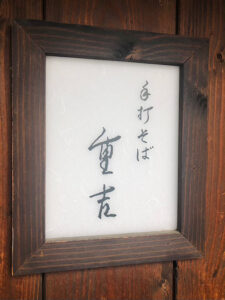 手打そば
重吉